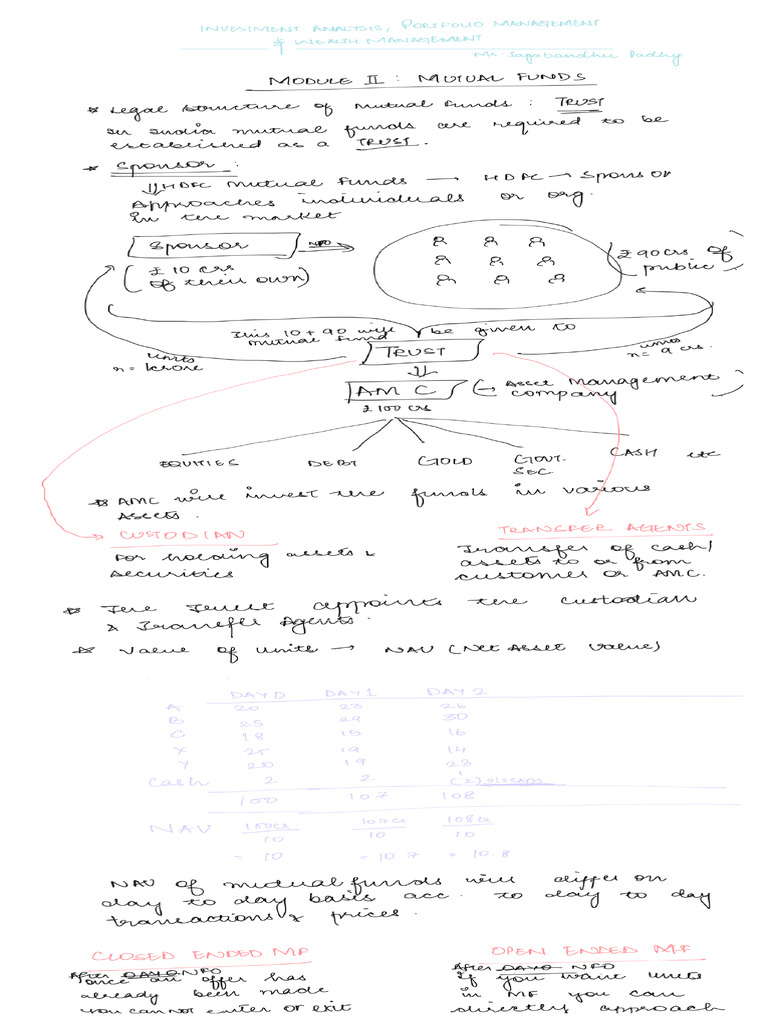 INVESTMENT ANALYSIS, PORTFOLIO MANAGEMENT
& WEALTH MANAGEMENT
Mr. Jagabandhu Padhy
MODULE II : MUTUAL FUNDS
* Legal Structure of Mutual Funds : TRUST
In India mutual funds are required to be
established as a TRUST.
* Sponsor :
⇓ HDFC Mutual Funds → HDFC → Sponsor
Approaches individuals or org.
in the market
Sponsor
NFO
(₹10 crs
of their own)
(₹90 crs of
public)
This 10+90 will be given to
mutual fund
TRUST
units
n = 1 crore
units
n = 9 crs.
⇓
AMC (→ Asset Management
company)
₹100 crs
EQUITIES DEBT GOLD GOVT. SEC CASH etc
* AMC will invest the funds in various
Assets.
CUSTODIAN
For holding assets &
securities
TRANSFER AGENTS
Transfer of cash/
assets to or from
customer or AMC.
* The Trust appoints the custodian
& Transfer Agents.
* Value of units → NAV (Net Asset Value)
DAY 0 DAY 1 DAY 2
A 20 23 26
B 25 29 30
C 18 15 16
X 25 19 14
Y 20 19 23
Cash 2 2 (2)
100 107 108
NAV 100cr/10 107cr/10 108cr/10
= 10 = 10.7 = 10.8
NAV of mutual funds will differ on
day to day basis acc. to day to day
transactions & prices.
CLOSED ENDED MF
After DAY 0 NFO
once an offer has
already been made
you cannot enter or exit
OPEN ENDED MF
After DAY 0 NFO
If you want units
in MF you can
directly approach